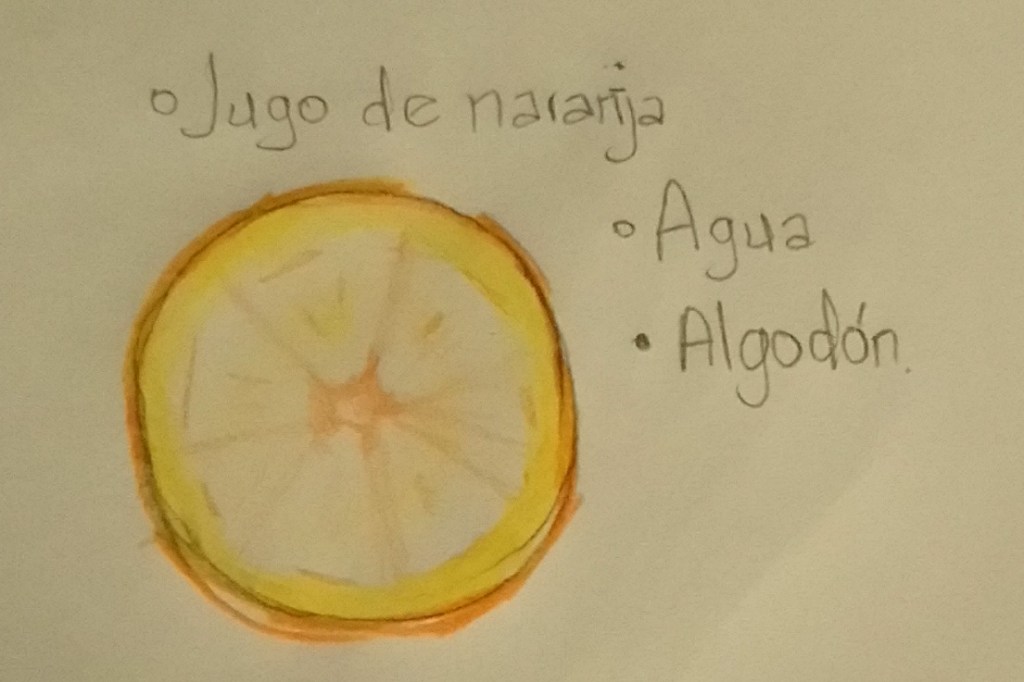 Jugo de naranja
Agua
Algodón.